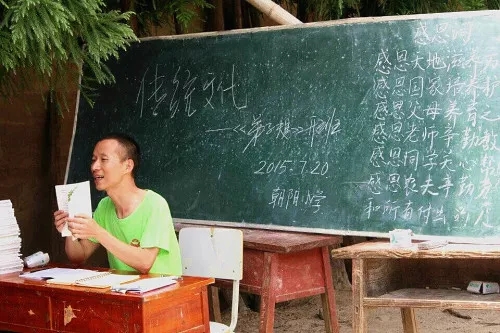 传统文化
——《弟子规》开班
2015.7.20
朝阳小学
感恩词
感恩天地滋养万
感恩国家培养护
感恩父母养育之
感恩老师辛勤教
感恩同学关心帮
感恩农夫辛勤劳
和所有付出的人